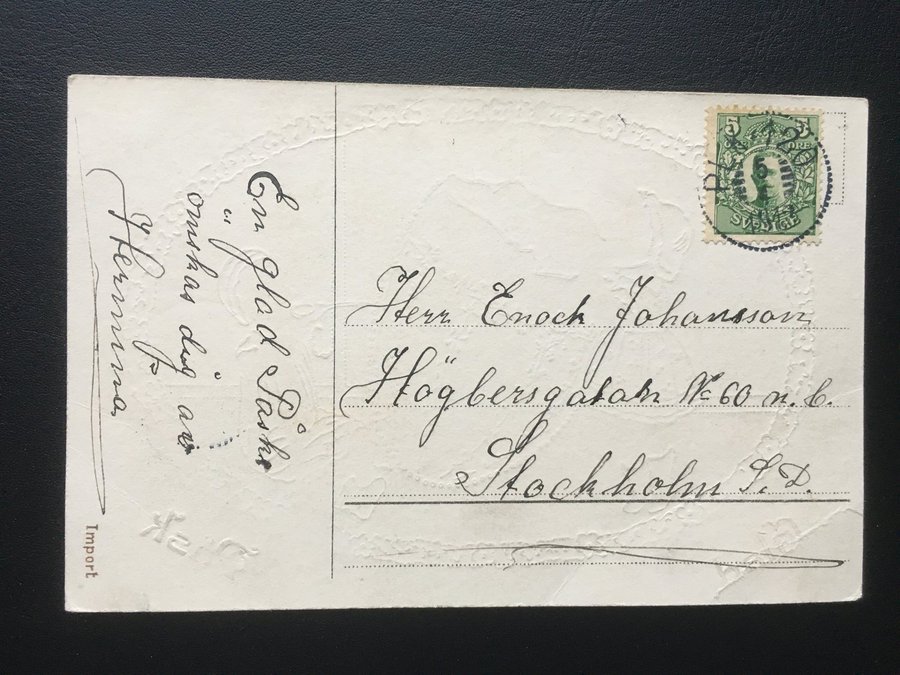 En glad Påsk
önskas dig av
Hermina
Import
5 5
ÖRE
SVERIGE
Herr Enock Johansson
Högbersgatan No 60 n. b.
Stockholm S. D.